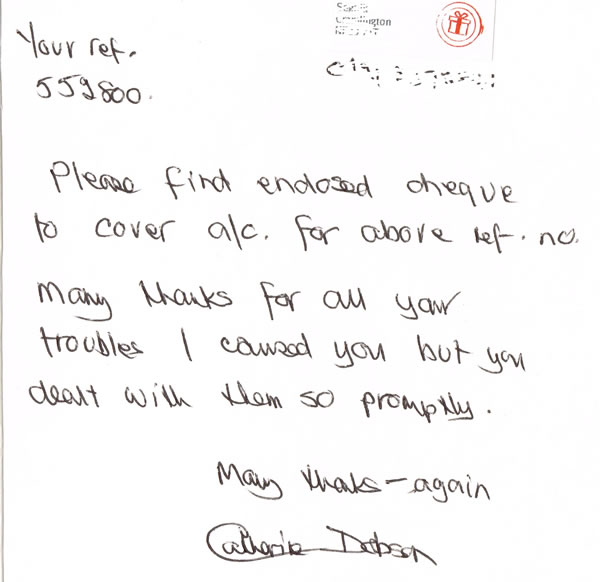 Your ref.
559800.
Please find enclosed cheque
to cover a/c. for above ref. no.
Many thanks for all your
troubles I caused you but you
dealt with them so promptly.
Many thanks - again
Catherine Dobson